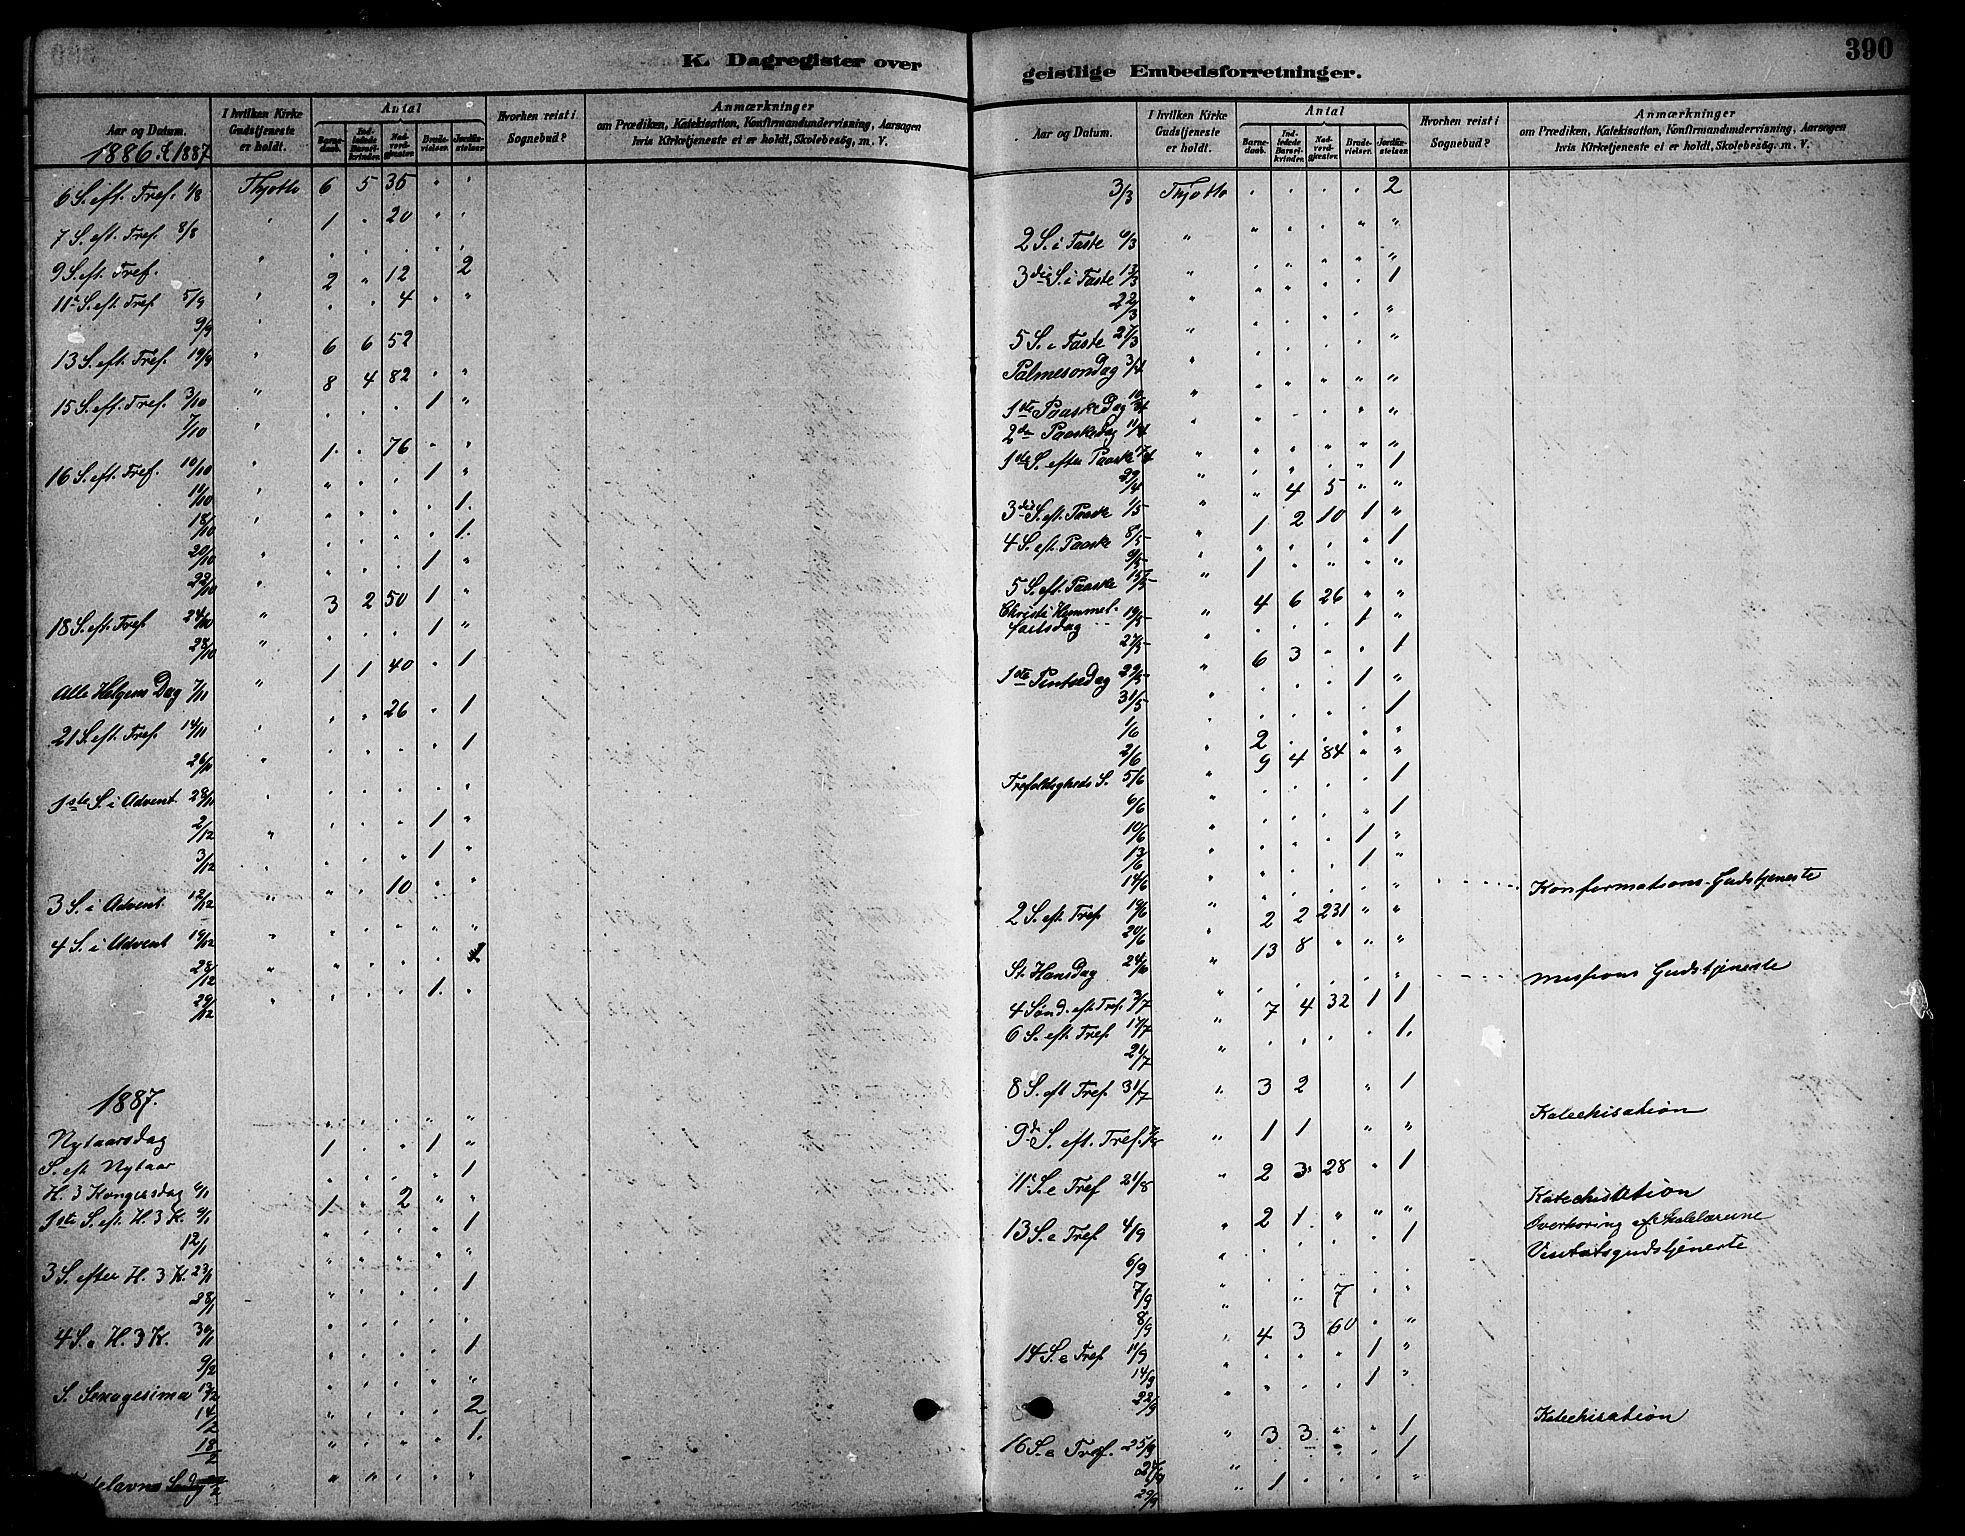 390
K. Dagregister over
geistlige Embedsforretninger.
Aar og Datum.
I hvilken Kirke Gudstjeneste er holdt.
Antal
Barnedaab.
Indledede Barselkvinder.
Nadverdgjester.
Brudevielser.
Jordfæstelser.
Hvorhen reist i Sognebud?
Anmærkninger
om Prædiken, Katekisation, Konfirmandundervisning, Aarsagen
hvis Kirketjeneste ei er holdt, Skolebesøg, m. V.
1886 & 1887
6 S. eft. Tref. 1/8 Thjotto 6 5 35 " "
7 S. eft. Tref. 8/8 " 1 " 20 " "
9 S. eft. Tref. " " " " " "
11te S. eft. Tref. 5/9 " 2 " 12 " 2
9/9 " " " 4 " "
13 S. eft. Tref. 19/9 " 6 6 52
15 S. eft. Tref. 3/10 " 8 4 82 " "
7/10 " " " " 1 "
16 S. eft. Tref. 10/10 " 1 " 76 " "
11/10 " " " " 1 "
18/10 " " " " " 1.
20/10 " " " " " 1.
22/10 " " " " 1 "
18 S. eft. Tref. 24/10 " 3 2 50 1 "
28/10 " " " " 1 "
Alle Helgens Dag 7/11 " 1 1 40 " 1
21 S. eft. Tref. 14/11 " " " 26 " 1
26/11 " " " " " 1
1ste S. i Advent 28/11 " " " " " "
2/12 " " " " 1 "
3/12 " " " " 1 "
3 S. i Advent 12/12 " " " 10 " "
4 S. i Advent 19/12 " " " " " "
28/12 " " " " " 1
29/12 " " " " 1. "
1887.
Nytaarsdag " " " " "
S. eft Nytaar 1 " " 1 "
H. 3 Kongersdag 6/1 " " " " 1
1ste S. eft. H. 3 K. 9/1 1 " 2 " "
12/1 " " " " 1
3 S. efter H. 3 K. 23/1 " " " " "
28/1 " " " " 1
4 S. e H. 3 K. 30/1 " " " " "
9/2 " " " " 1
S. Sexagesima 13/2 " " " " "
14/2 " " " " 2
18/2 " " " " 1.
" " " " "
Aar og Datum.
I hvilken Kirke Gudstjeneste er holdt.
Antal
Barnedaab.
Indledede Barselkvinder.
Nadverdgjester.
Brudevielser.
Jordfæstelser.
Hvorhen reist i Sognebud?
Anmærkninger
om Prædiken, Katekisation, Konfirmandundervisning, Aarsagen
hvis Kirketjeneste ei er holdt, Skolebesøg, m. V.
3/3 Thjotto " " " " 2
2 S. i Faste 6/3 " " " " " "
3die S. i Faste 13/3 " " " " " "
22/3 " " " " " 1
5 S. i Faste 27/3 " " " " " "
Palmesondag 3/4 " " " " " "
1ste Paaske Dag 10/4 " " " " " "
2den Paaskedag 11/4 " " " " "
1ste S. efter Paaske 17/4 " " " " " "
29/4 " " " " " 1
3die S. eft. Paaske 1/5 " " 4 5 " "
4 S. eft. Paaske 8/5 " 1 2 10 1 "
9/5 " " " " " 1
5 S. eft. Paaske 15/5 " 1 " " " "
Christi Hemmelfartsdag 19/5 " 4 6 26 " "
27/5 " " " " 1 "
1ste Pintsedag 29/5 " 6 3 " " 1
31/5 " " " " 1 "
1/6 " " " " " 1
2/6 " 2 " " " "
Trefoldigheds S. 5/6 " 9 4 84 " "
6/6 " " " " " 1
10/6 " " " " " 1
13/6 " " " " 1 "
14/6 " " " " 1 "
2 S. eft Tref 19/6 " " " " " " Konformations-Gudstjeneste
20/6 " 2 2 231 " "
St. Hansdag 24/6 " 13 8 " " "
4 Sønd. eft Tref. 3/7 " " " " " " Missions Gudstjeneste
6 S. eft Tref 17/7 " 7 4 32 1 1
21/7 " " " " " 1.
8 S. eft Tref 31/7 " 3 2 " 1
9de S. eft. Tref. " 1 1 " " Katechisation
11. S. e Tref 21/8 " 2 3 28 " 1
13 S. e Tref 4/9 " 2 1 " " " Katechisation
6/9 " " " " " 1 Overhoring af Skolelærerne
7/9 " " " " " " Visitatsgudstjeneste
8/9 " " " 7 " "
14 S. e Tref 11/9 " 4 3 60 " "
14/9 " " " " 1 "
22/9 " " " " 1 "
16 S. e Tref. 25/9 " 3 3 " " 1 Katechisation
" " " 1
29/9 " 1 " "